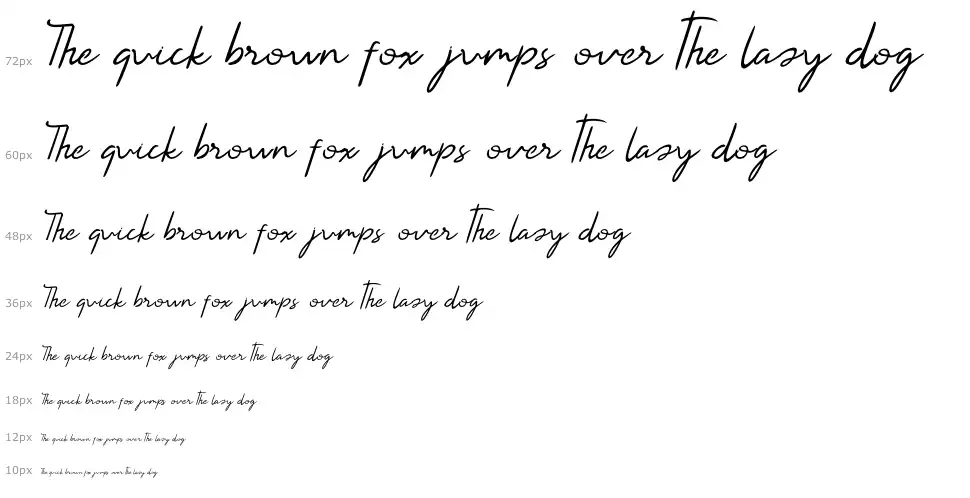 72px The quick brown fox jumps over the lazy dog
60px The quick brown fox jumps over the lazy dog
48px The quick brown fox jumps over the lazy dog
36px The quick brown fox jumps over the lazy dog
24px The quick brown fox jumps over the lazy dog
18px The quick brown fox jumps over the lazy dog
12px The quick brown fox jumps over the lazy dog
10px The quick brown fox jumps over the lazy dog